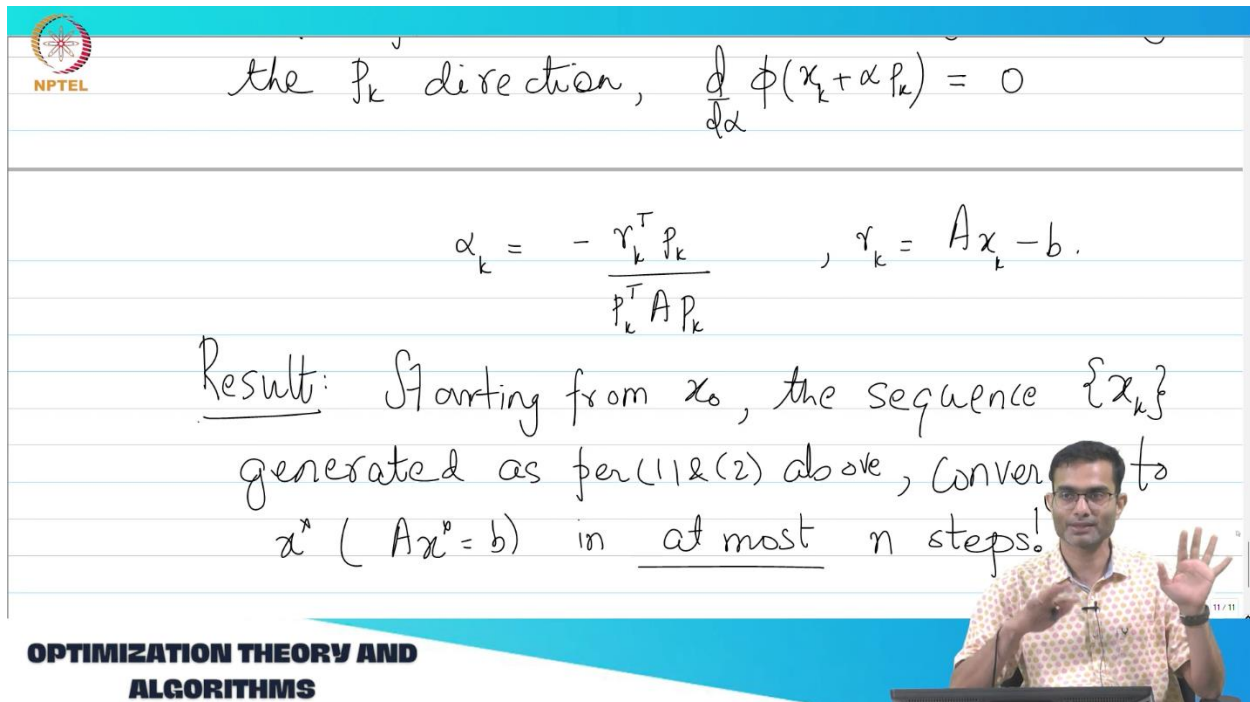 NPTEL
the pₖ direction, d/dα ϕ(xₖ + α pₖ) = 0
αₖ = - rₖᵀ pₖ / pₖᵀ A pₖ , rₖ = Axₖ - b.
Result: Starting from x₀, the sequence {xₖ}
generated as per (1) & (2) above, conver to
x* ( Ax* = b) in at most n steps!
11 / 11
OPTIMIZATION THEORY AND
ALGORITHMS